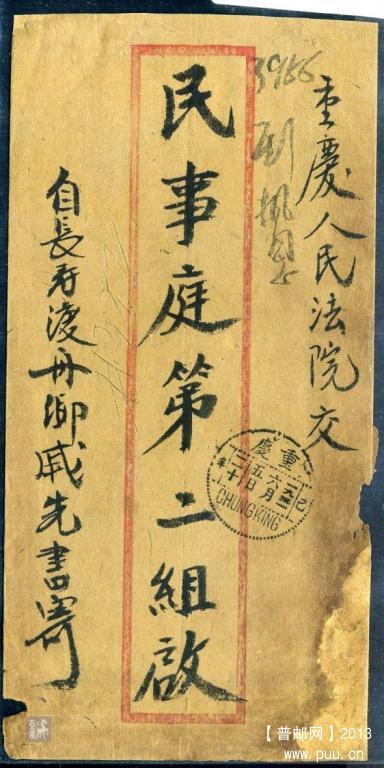 重慶人民法院交
3966
民事庭第二組啟
自長寿渡舟鄉戚先書寄
重慶
CHUNGKING
【普邮网】2013
www.puu.cn